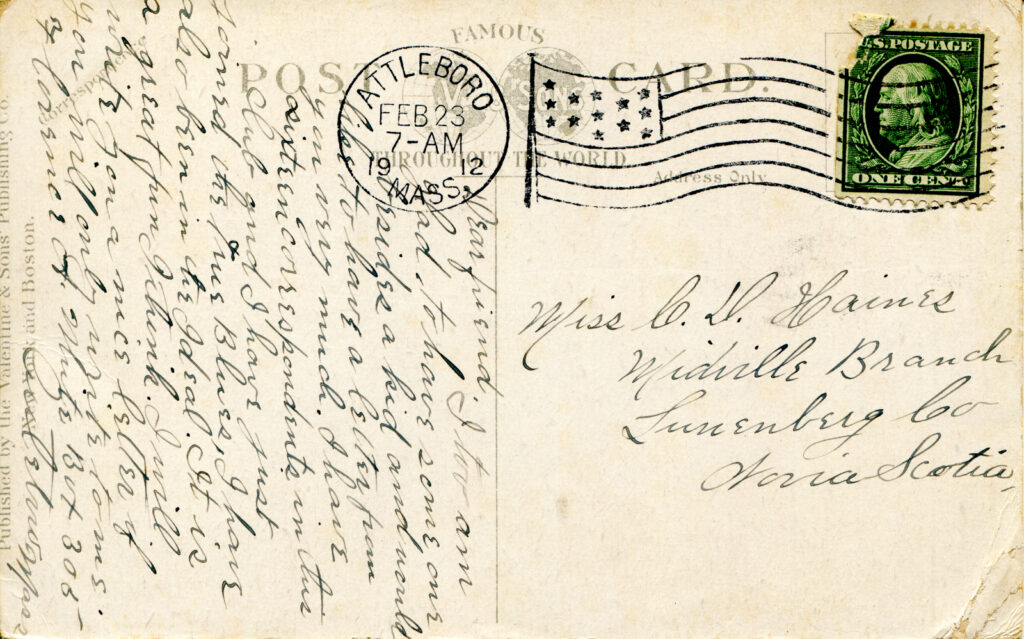 FAMOUS
POST CARD.
THROUGHOUT THE WORLD
Correspondence
Address Only
ATTLEBORO
FEB 23
7-AM
1912
MASS.
U.S. POSTAGE
ONE CENT
Miss C. D. Haines
Midville Branch
Lunenberg Co
Novia Scotia,
Dear friend, I too am
glad to have some one
besides a kid and would
like to have a letter from
you very much. I have
sixteen correspondents in this
club and I have just
joined the True Blues, I have
also been in the Ideal. It is
a great fun I think. I will
write you a nice letter if
you will only write to me.
Box 308
Mass
Published by the Valentine & Sons Publishing Co.
and Boston.